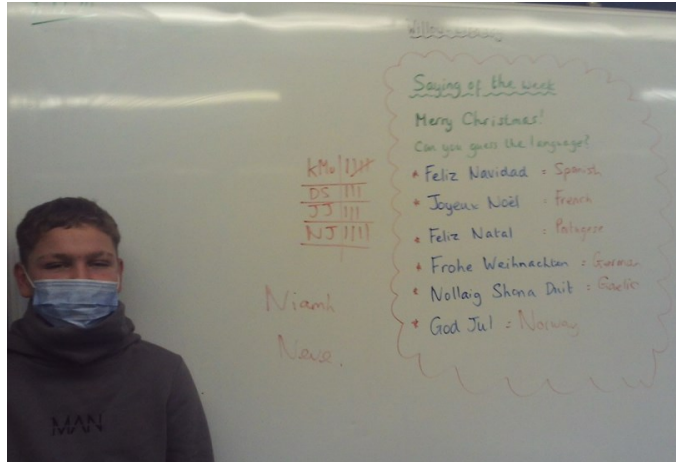 Saying of the week
Merry Christmas!
Can you guess the language?
* Feliz Navidad = Spanish
* Joyeux Noël = French
* Feliz Natal = Portugese
* Frohe Weihnachten = German
* Nollaig Shona Duit = Gaelic
* God Jul = Norway
KMo
DS |||
JJ |||
NJ ||||
Niamh
Neve.
MAN